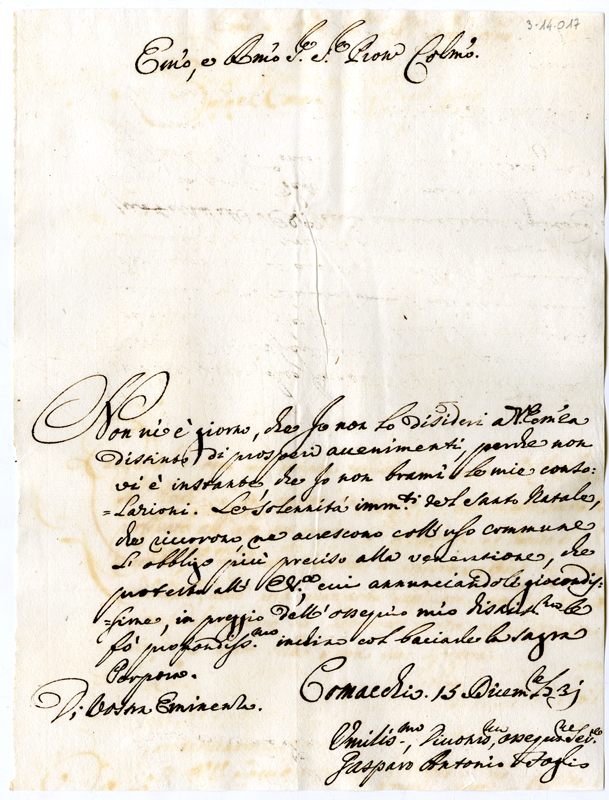 3-14-017
Emo, e Rmo Sre. Sre. Pron Colmo.
Non vi è giorno, che Io non lo disideri a V. Emza
distinto di prosperi avvenimenti, perche non
vi è instante, che Io non brami le mie conso-
=lazioni. Le solennità immti. del Santo Natale,
che ricorrono, ne acrescono coll'uso commune
l'obbligo più preciso alla venerazione, che
protesto all' E.V., cui annunciandole giocondis-
=sime, in preggio dell'ossequio mio le
fò profondissmo. inchino col baciarle la Sagra
Porpora.
Di Vostra Eminenza.
Comacchio. 15 Dicembre 31
Umilissmo, ossequmo Serre
Gasparo Antonio